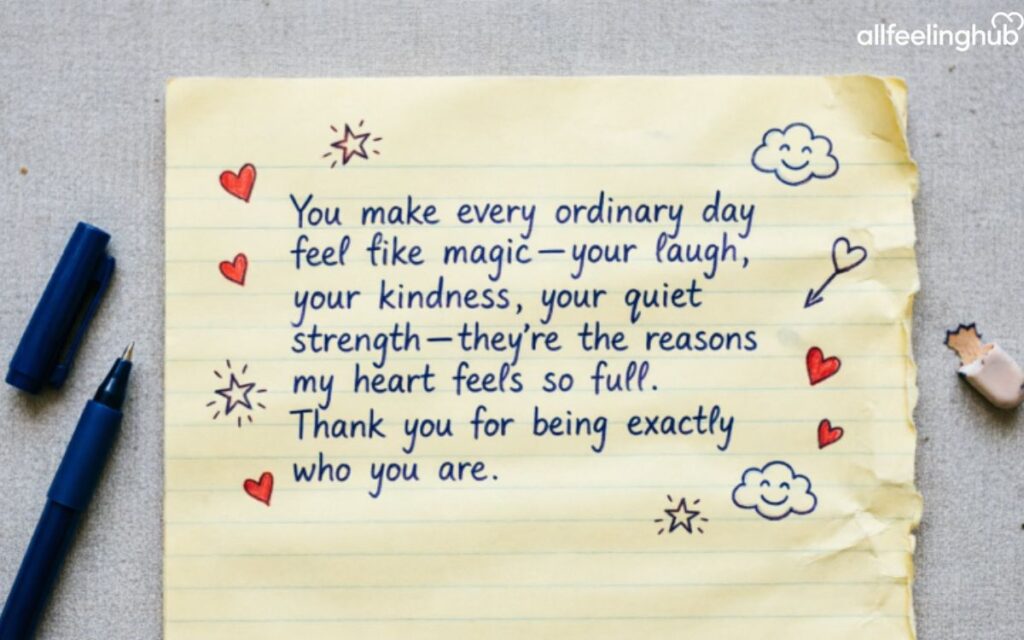 allfeelinghub
You make every ordinary day
feel fike magic—your laugh,
your kindness, your quiet
strength—they're the reasons
my heart feels so full.
Thank you for being exactly
who you are.